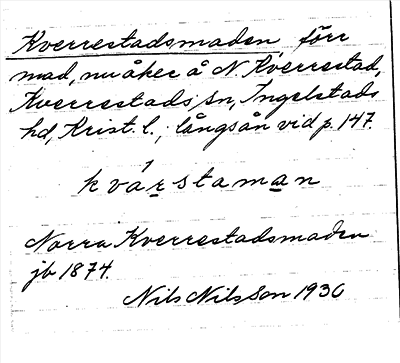 Kverrestadsmaden, förr
mad, nu åker å N. Kverrestad,
Kverrestads sn, Ingelstads
hd, Krist. l., långsån vid p. 147.
kvárstaman
Norra Kverrestadsmaden
jb 1874.
Nils Nilsson 1930